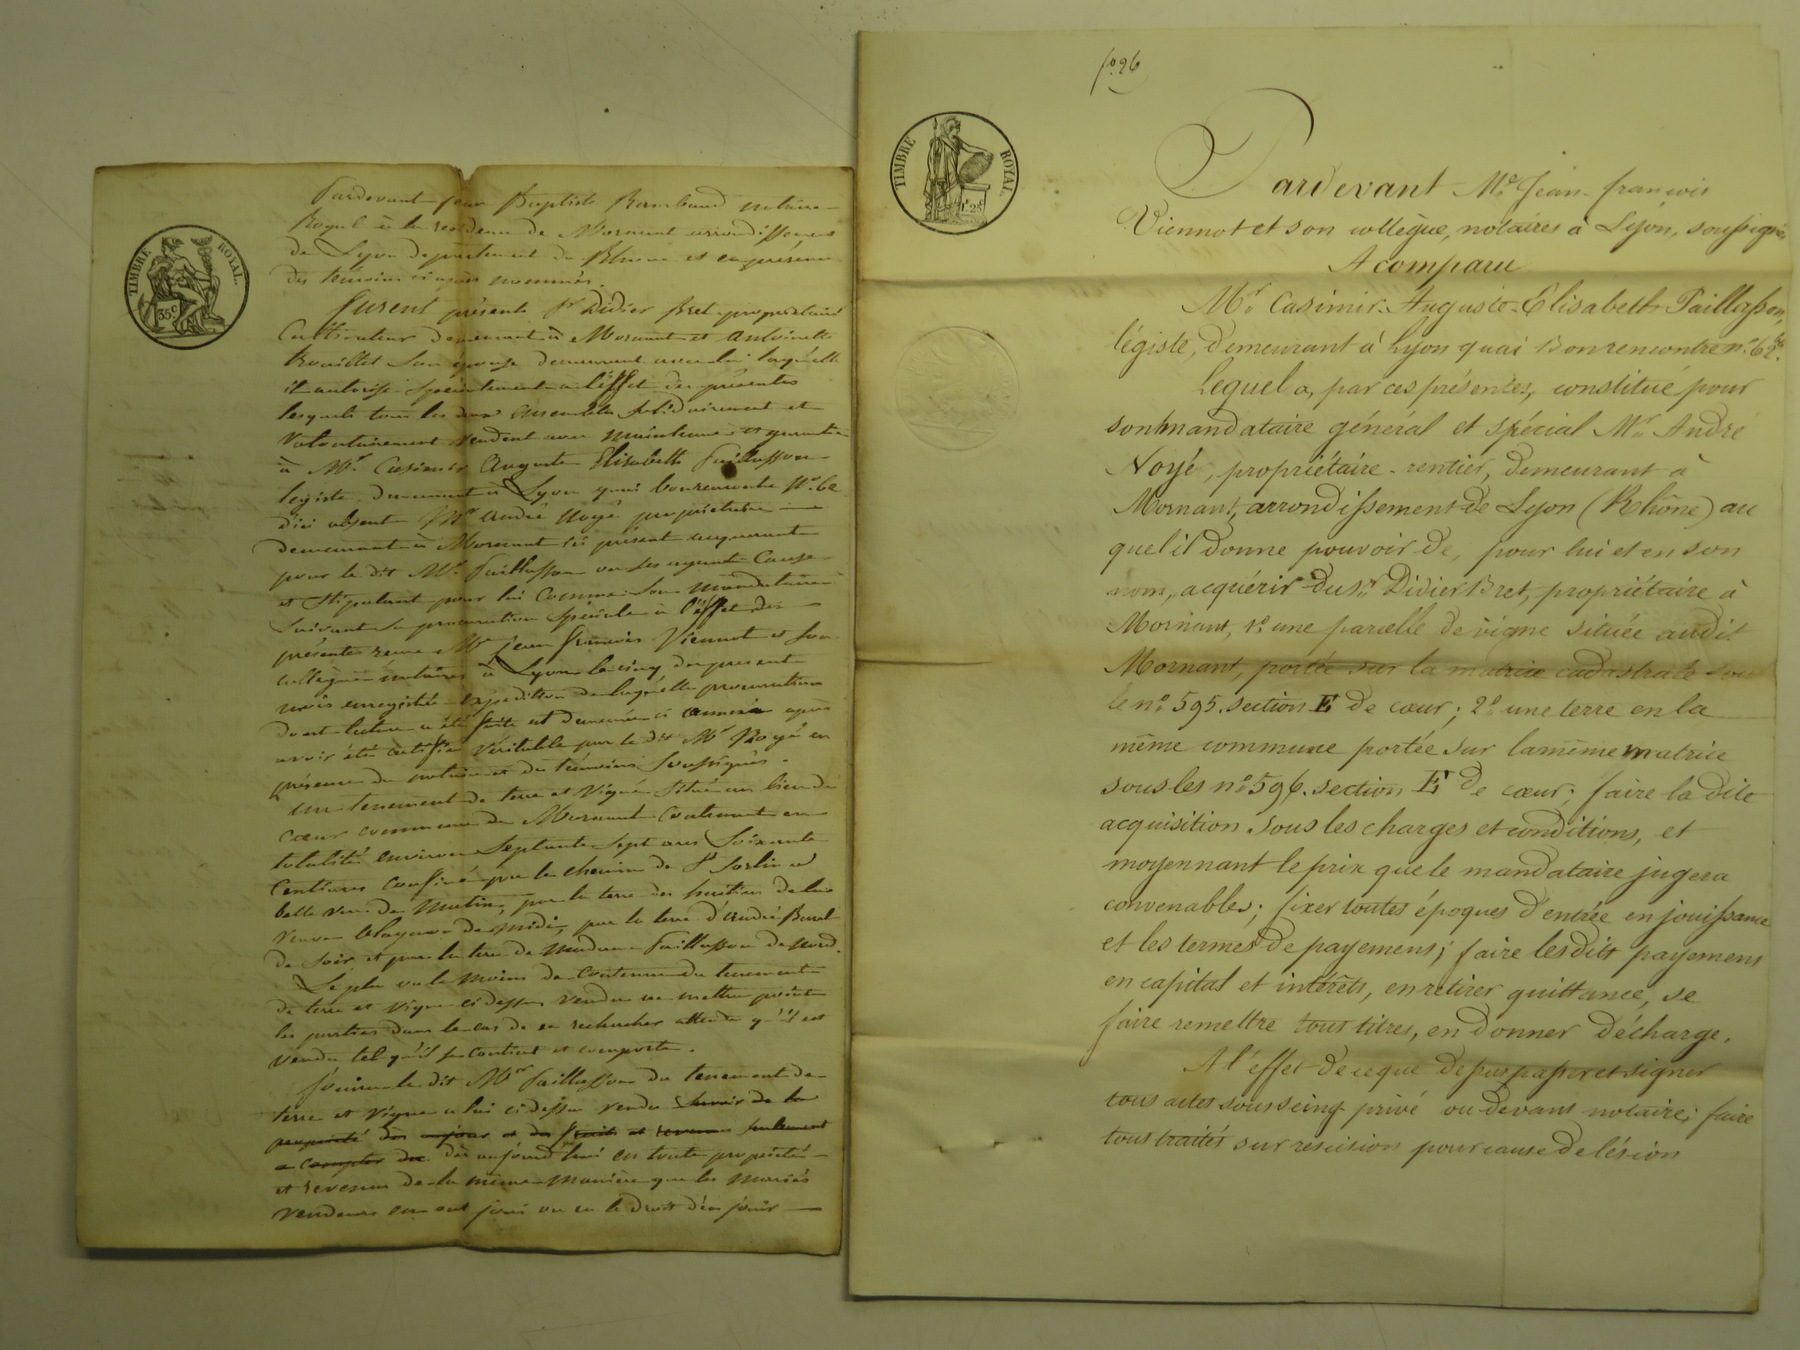 TIMBRE ROYAL
35c
Pardevant Jean Baptiste Rambaud notaire
Royal à la residence de Mornant arrondissement
de Lyon departement du Rhône et en présence
des témoins ci après nommés.
furent présents Sr Didier Bret propriétaire
Cultivateur demeurant à Mornant et Antoinette
Bouillet son épouse demeurant avec lui laquelle
il autorise spécialement à l'effet des présentes
lesquels tous les deux ensemble solidairement et
volontairement vendent avec maintenue et garantie
à Mr. Casimir Auguste Elisabeth Paillasson
legiste, demeurant à Lyon quai bonrencontre No. 62
d'ici absent Mr André Noyé propriétaire
demeurant à Mornant ici présent acquerant
pour le dit Mr. Paillasson ou ses ayants Cause
et stipulant pour lui Comme son mandataire
suivant sa procuration spéciale à l'effet des
présentes reçue Me Jean François Viennot et son
collègue notaires à Lyon le cinq du present
mois enregistrée expédition de laquelle procuration
dont lecture a été faite est demeurée ci annexée après
avoir été certifiée véritable par le dit Mr Noyé en
présence du notaire et des témoins soussignés.
un tenement de terre et Vigne situé au lieu de
Cœur commune de Mornant Contenant en
totalité environ Septante Sept ares Soixante
Centiares confiné par le chemin de St Sorlin à
belle vue de Matin, par la terre des heritiers de la
veuve de midi, par la terre d'André
de Soir et par la terre de Madame Paillasson de Nord.
Le plus ou le moins de Contenue du tenement
de terre et vigne ci dessus vendu ne mettra point
les parties dans le cas de se rechercher attendu qu'il est
vendu tel qu'il se contient et comporte.
Jouira le dit Mr Paillasson du tenement de
terre et vigne a lui ci dessus vendu Savoir de la
propriété dès aujour et des fruits et revenus seulement
a compter du dès aujourd'hui en toute propriété
et révenus de la même manière que les mariés
vendeurs en ont joui ou eu le droit d'en jouir
fo. 26
TIMBRE ROYAL
1f 25c
Pardevant Me. Jean-françois
Viennot et son collègue, notaires à Lyon, soussignés
A comparu
Mr. Casimir-Auguste-Elisabeth Paillasson,
légiste, demeurant à Lyon quai Bonrencontre no. 62 bis.
Lequel a, par ces présentes, constitué pour
son mandataire général et spécial Mr. André
Noyé, propriétaire-rentier, demeurant à
Mornant, arrondissement de Lyon (Rhône) au
quel il donne pouvoir de, pour lui et en son
nom, acquérir du Sr. Didier Bret, propriétaire à
Mornant, 1o. une parcelle de vigne située audit
Mornant, portée sur la matrice cadastrale sous
le no. 595. section E de cœur; 2o. une terre en la
même commune portée sur la même matrice
sous les no. 596. section E de cœur; faire la dite
acquisition sous les charges et conditions, et
moyennant le prix que le mandataire jugera
convenables; fixer toutes époques d'entrée en jouissance
et les termes de payemens; faire les dits payemens
en capital et intérêts, en retirer quittance, se
faire remettre tous titres, en donner décharge.
A l'effet de ce que dessus passer et signer
tous actes sous seing privé ou devant notaire; faire
tous traités sur rescision pour cause de lésion